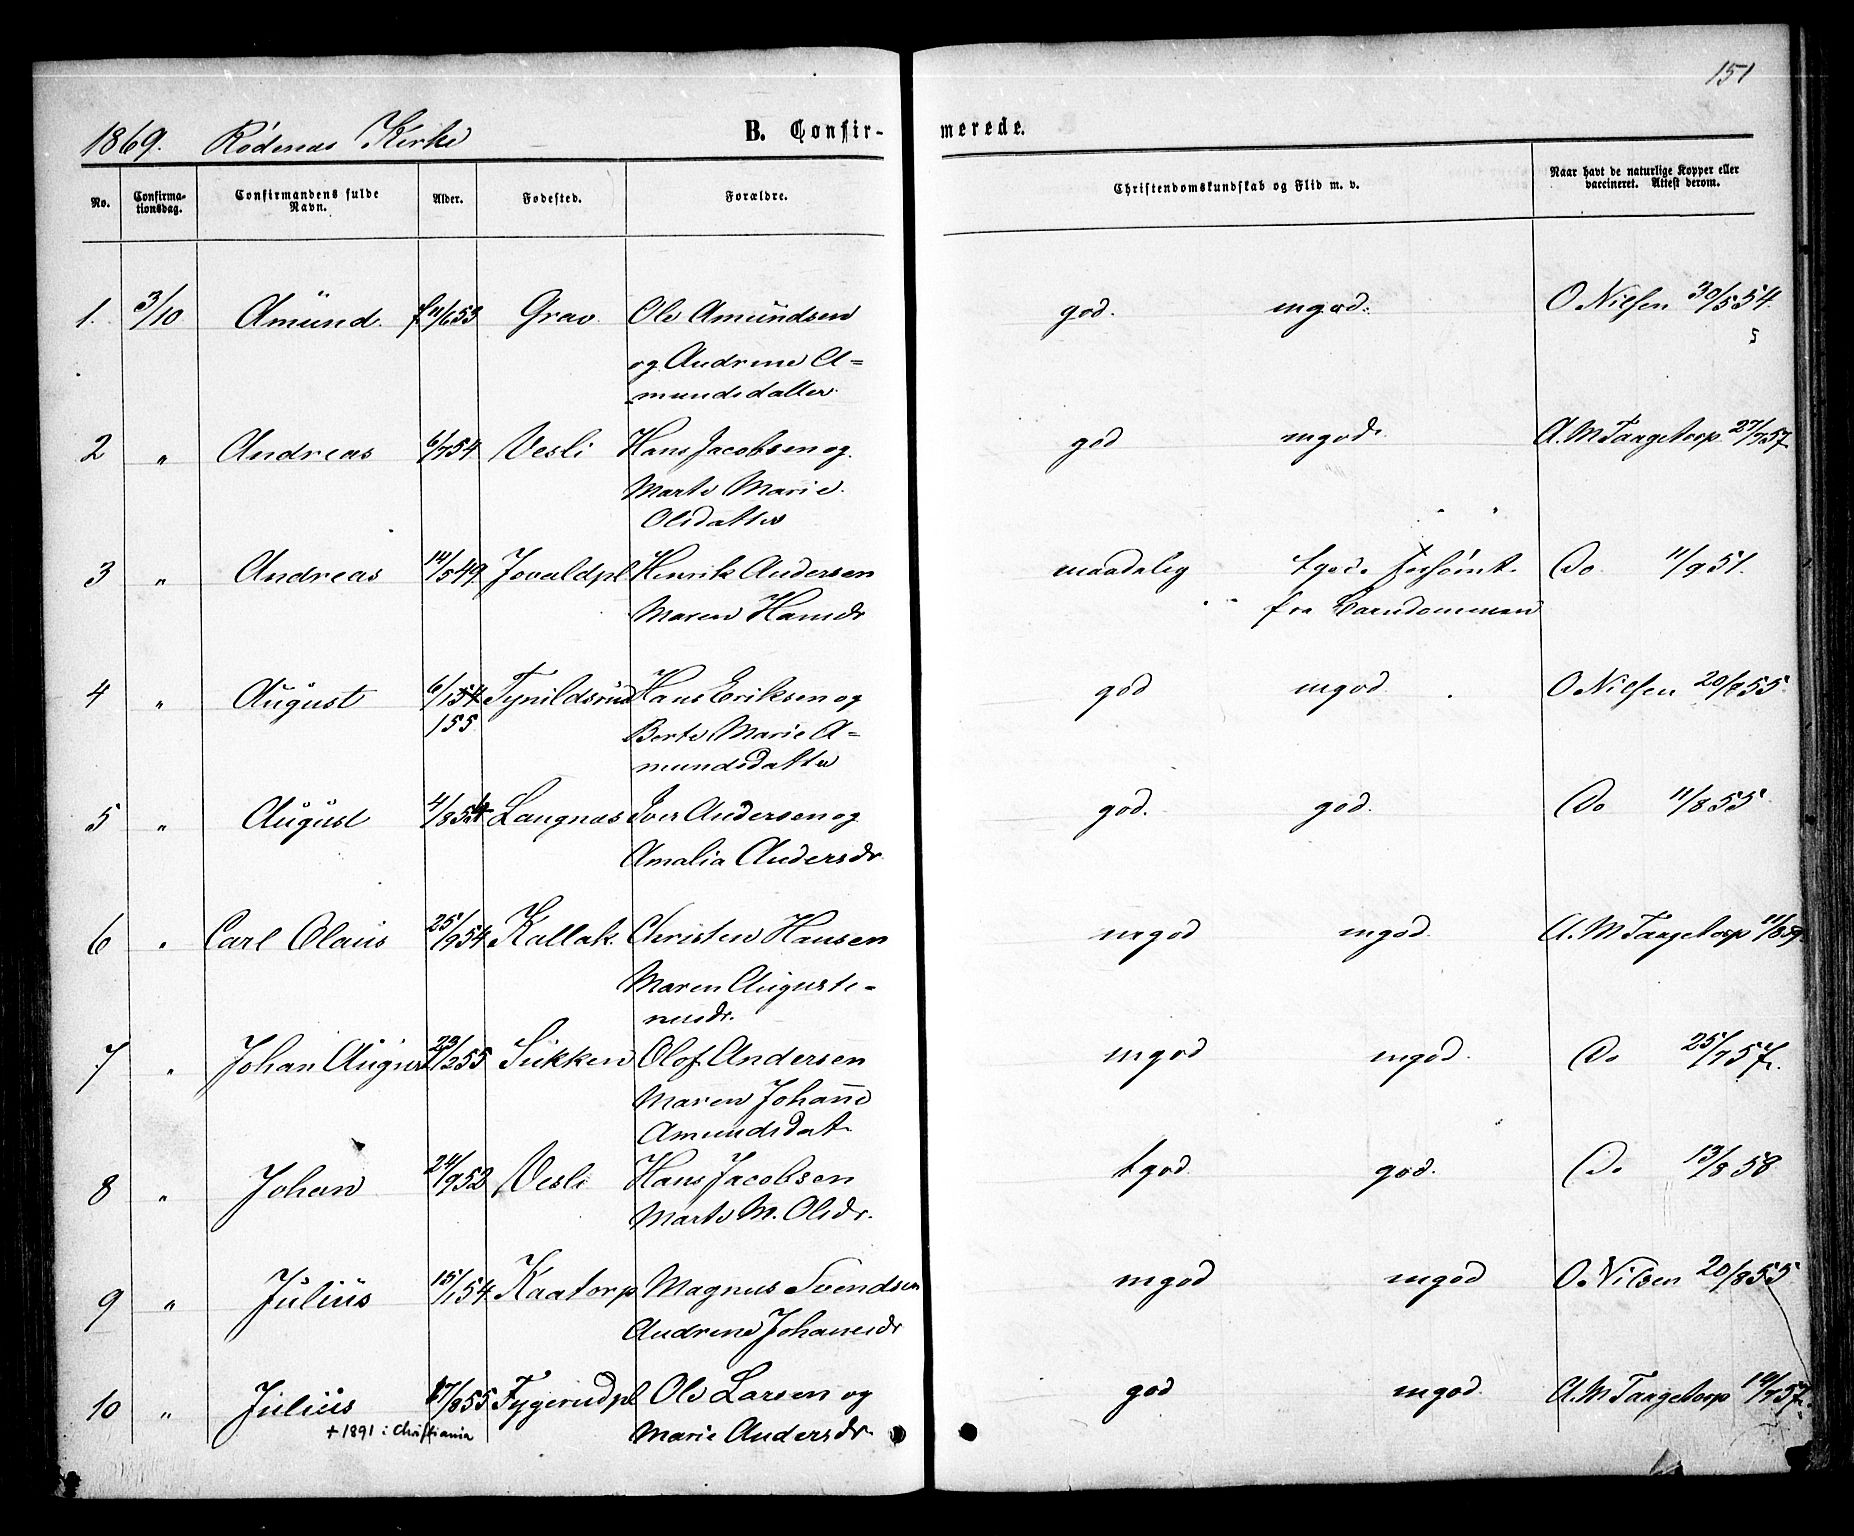 151
1869. Rødenes Kirke B. Confirmerede.
No. Confirmationsdag. Confirmandens fulde Navn. Alder. Fødested. Forældre. Christendomskundskab og Flid m. v. Naar havt de naturlige Kopper eller vaccineret. Attest derom.
1. 3/10 Amünd. f 11/6 53 Grav Ole Amündsen god. mgod. O Nielsen 30/5 54.
og Andrine A=
mundsdatter
2 " Andreas 6/7 54 Vesli Hans Jacobsen og god mgod. A. M Taagetorp 27/7 57.
Marte Marie
Olsdatter
3 " Andreas 14/5 49 Jovaldpl Henrik Andersen maadelig tgod. Forsømt Do 11/9 51.
Maren Hansdr fra Barndommen
4 " Aügüst 6/1 54 Tynildsrud Hans Eriksen og god mgod. O Nielsen 20/8 55.
155 Berte Marie A=
mundsdatter
5 " Aügüst 4/8 54 Langnes Iver Andersen og god. god. Do 11/8 55.
Amalia Andersdr.
6 " Carl Olaüs 25/9 54 Kallak. Christen Hansen mgod mgod. A. M Taagetorp 11/8 59.
Maren Auguste=
nusdr.
7 " Johan Aügust 23/2 55 Sükken Olof Andersen mgod mgod. Do 25/7 57.
Maren Johanne
Amundsdat.
8 " Johan 24/9 52 Vesli Hans Jacobsen tgod. god. Do 13/8 58
Marte M. Olsdr.
9 " Jülius 15/1 54 Kaatorp Magnus Svendsen mgod mgod O. Nilsen 20/8 55
Andrine Johanesdr
10 " Jülius 17/8 55 Tygerudpl Ole Larsen og god mgod. A. M Taagetorp 14/7 57.
+ 1891 i Christiania Marie Andersdr.